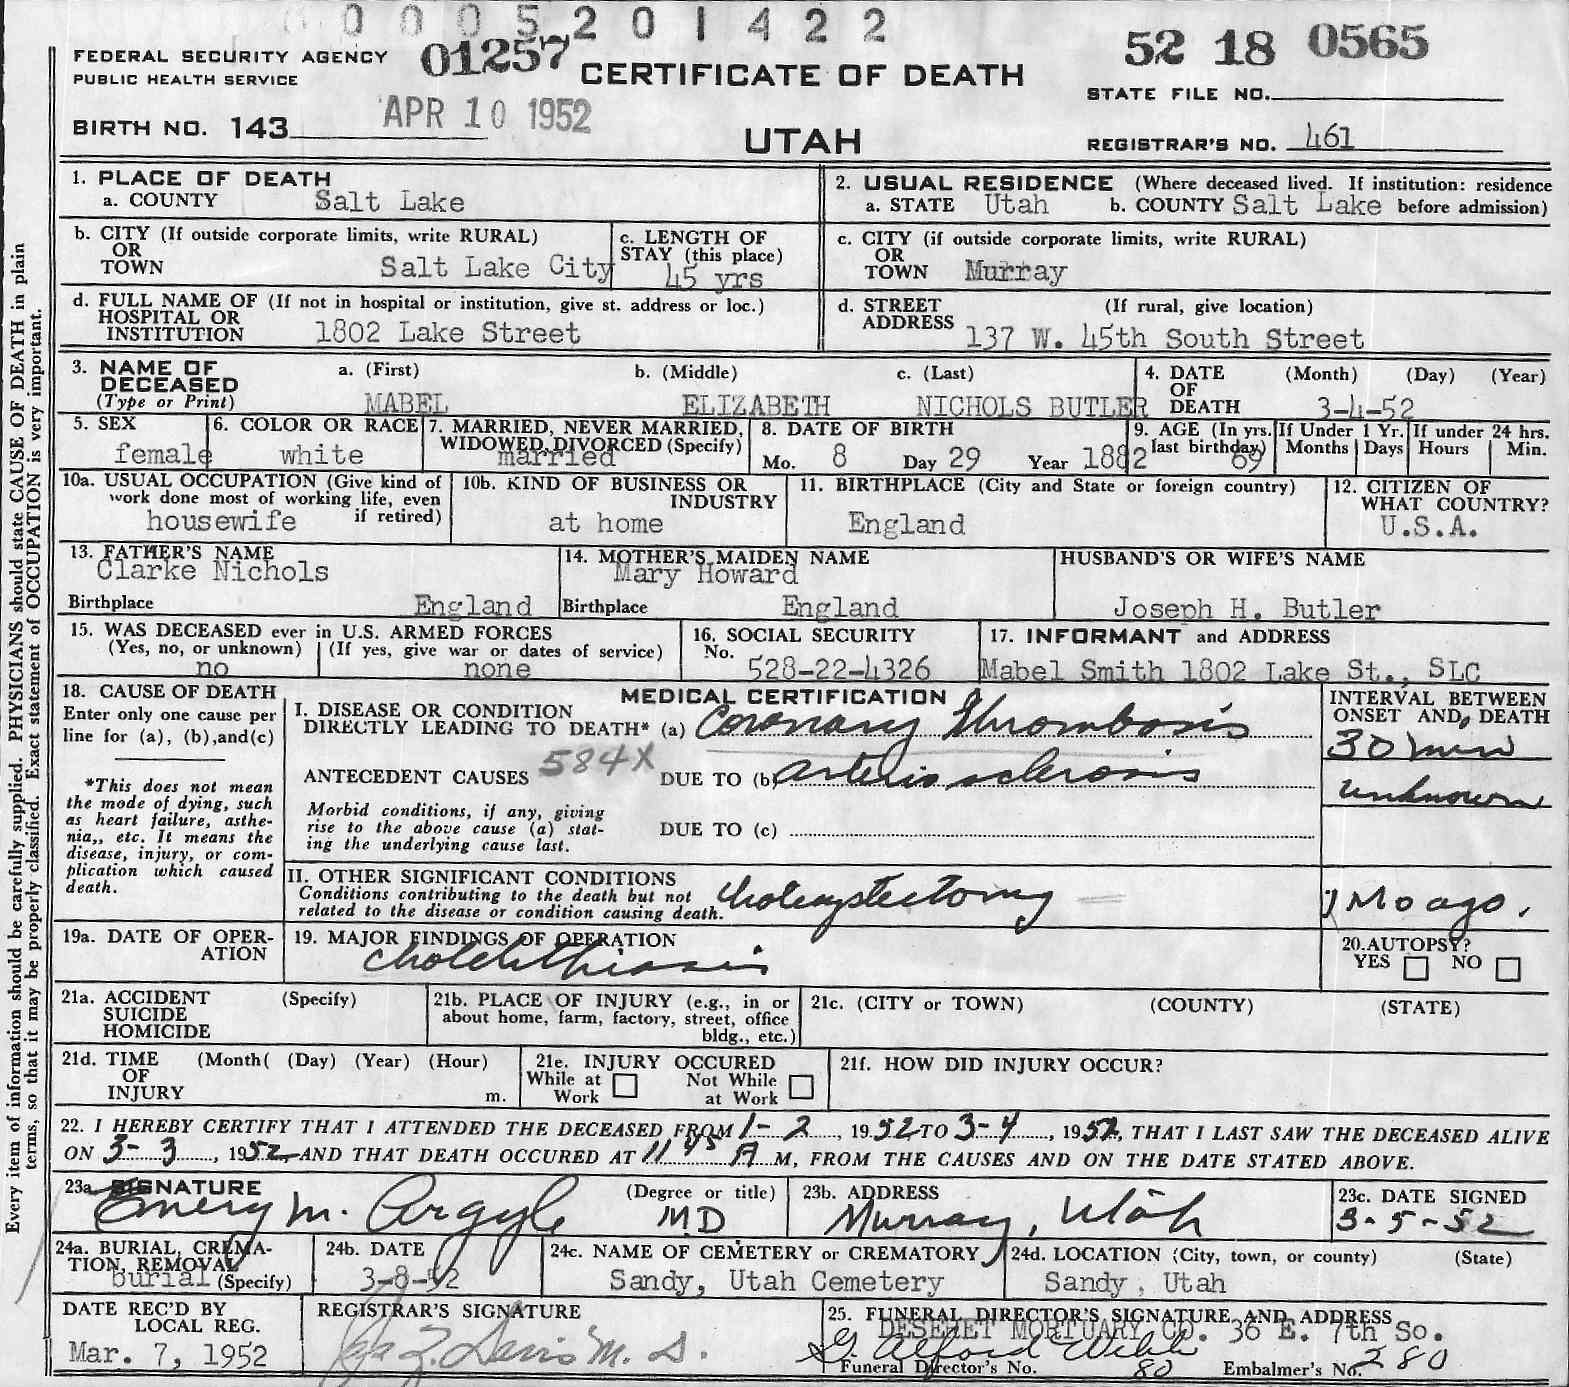 0005201422
FEDERAL SECURITY AGENCY
PUBLIC HEALTH SERVICE
01257
CERTIFICATE OF DEATH
52 18 0565
STATE FILE NO.
BIRTH NO. 143
APR 10 1952
UTAH
REGISTRAR'S NO. 461
Every item of information should be carefully supplied. PHYSICIANS should state CAUSE OF DEATH in plain
terms, so that it may be properly classified. Exact statement of OCCUPATION is very important.
1. PLACE OF DEATH
a. COUNTY Salt Lake
2. USUAL RESIDENCE (Where deceased lived. If institution: residence
a. STATE Utah b. COUNTY Salt Lake before admission)
b. CITY (If outside corporate limits, write RURAL)
OR
TOWN Salt Lake City
c. LENGTH OF
STAY (this place)
45 yrs
c. CITY (if outside corporate limits, write RURAL)
OR
TOWN Murray
d. FULL NAME OF (If not in hospital or institution, give st. address or loc.)
HOSPITAL OR
INSTITUTION 1802 Lake Street
d. STREET (If rural, give location)
ADDRESS 137 W. 45th South Street
3. NAME OF
DECEASED
(Type or Print)
a. (First) b. (Middle) c. (Last)
MABEL ELIZABETH NICHOLS BUTLER
4. DATE (Month) (Day) (Year)
OF
DEATH 3-4-52
5. SEX
female
6. COLOR OR RACE
white
7. MARRIED, NEVER MARRIED,
WIDOWED, DIVORCED (Specify)
married
8. DATE OF BIRTH
Mo. 8 Day 29 Year 1882
9. AGE (In yrs.
last birthday)
69
If Under 1 Yr.
Months Days
If under 24 hrs.
Hours Min.
10a. USUAL OCCUPATION (Give kind of
work done most of working life, even
if retired)
housewife
10b. KIND OF BUSINESS OR
INDUSTRY
at home
11. BIRTHPLACE (City and State or foreign country)
England
12. CITIZEN OF
WHAT COUNTRY?
U.S.A.
13. FATHER'S NAME
Clarke Nichols
Birthplace England
14. MOTHER'S MAIDEN NAME
Mary Howard
Birthplace England
HUSBAND'S OR WIFE'S NAME
Joseph H. Butler
15. WAS DECEASED ever in U.S. ARMED FORCES
(Yes, no, or unknown) (If yes, give war or dates of service)
no none
16. SOCIAL SECURITY
No. 528-22-4326
17. INFORMANT and ADDRESS
Mabel Smith 1802 Lake St., SLC
18. CAUSE OF DEATH
Enter only one cause per
line for (a), (b),and(c)
*This does not mean
the mode of dying, such
as heart failure, asthe-
nia,, etc. It means the
disease, injury, or com-
plication which caused
death.
MEDICAL CERTIFICATION
I. DISEASE OR CONDITION
DIRECTLY LEADING TO DEATH* (a) Coronary Thrombosis
ANTECEDENT CAUSES 584X DUE TO (b) arterio sclerosis
Morbid conditions, if any, giving
rise to the above cause (a) stat-
ing the underlying cause last.
DUE TO (c)
INTERVAL BETWEEN
ONSET AND DEATH
30 min
unknown
II. OTHER SIGNIFICANT CONDITIONS
Conditions contributing to the death but not
related to the disease or condition causing death.
Cholecystectomy
1 Mo ago.
19a. DATE OF OPER-
ATION
19. MAJOR FINDINGS OF OPERATION
Cholelithiasis
20. AUTOPSY?
YES NO
21a. ACCIDENT (Specify)
SUICIDE
HOMICIDE
21b. PLACE OF INJURY (e.g., in or
about home, farm, factory, street, office
bldg., etc.)
21c. (CITY or TOWN) (COUNTY) (STATE)
21d. TIME (Month( (Day) (Year) (Hour)
OF
INJURY m.
21e. INJURY OCCURED
While at Not While
Work at Work
21f. HOW DID INJURY OCCUR?
22. I HEREBY CERTIFY THAT I ATTENDED THE DECEASED FROM 1-2, 1952 TO 3-4, 1952, THAT I LAST SAW THE DECEASED ALIVE
ON 3-3, 1952 AND THAT DEATH OCCURED AT 11 45 A M, FROM THE CAUSES AND ON THE DATE STATED ABOVE.
23a. SIGNATURE (Degree or title)
Emery M. Argyle MD
23b. ADDRESS
Murray, Utah
23c. DATE SIGNED
3-5-52
24a. BURIAL, CREMA-
TION, REMOVAL
burial (Specify)
24b. DATE
3-8-52
24c. NAME OF CEMETERY or CREMATORY
Sandy, Utah Cemetery
24d. LOCATION (City, town, or county) (State)
Sandy, Utah
DATE REC'D BY
LOCAL REG.
Mar. 7, 1952
REGISTRAR'S SIGNATURE
M. D.
25. FUNERAL DIRECTOR'S SIGNATURE AND ADDRESS
DESERET MORTUARY CO. 36 E. 7th So.
Funeral Director's No. 80 Embalmer's No. 280